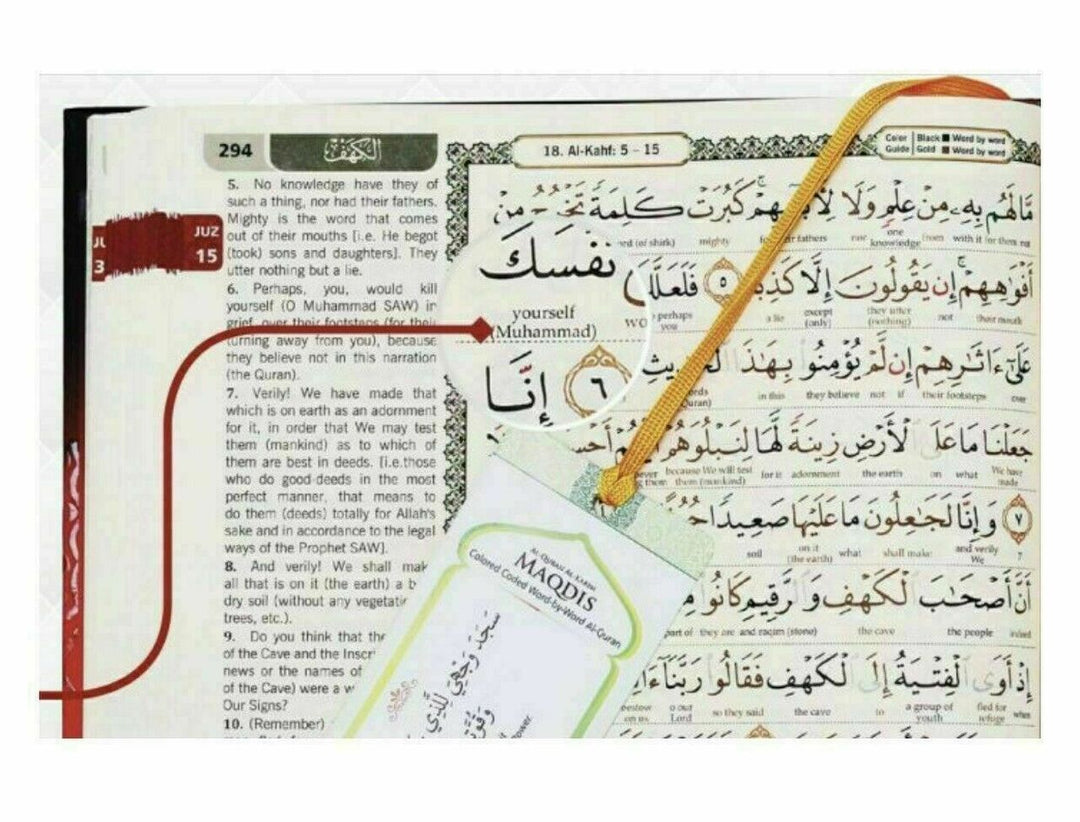 294
الكهف
18. Al-Kahf: 5 – 15
Color | Black ■ Word by word
Guide | Gold ■ Word by word
JUZ
15
5. No knowledge have they of
such a thing, nor had their fathers.
Mighty is the word that comes
out of their mouths [i.e. He begot
(took) sons and daughters]. They
utter nothing but a lie.
6. Perhaps, you, would kill
yourself (O Muhammad SAW) in
grief, over their footsteps (for their
turning away from you), because
they believe not in this narration
(the Quran).
7. Verily! We have made that
which is on earth as an adornment
for it, in order that We may test
them (mankind) as to which of
them are best in deeds. [i.e.those
who do good deeds in the most
perfect manner, that means to
do them (deeds) totally for Allah's
sake and in accordance to the legal
ways of the Prophet SAW].
8. And verily! We shall mak
all that is on it (the earth) a b
dry soil (without any vegetatio
trees, etc.).
9. Do you think that the
of the Cave and the Inscr
news or the names of
of the Cave) were a w
Our Signs?
10. (Remember)
مَّا لَهُم بِهِ مِنْ عِلْمٍ وَلَا لِآبَائِهِمْ كَبُرَتْ كَلِمَةً تَخْرُجُ مِنْ
(of shirk) mighty fathers nor knowledge from with it for them
نَفْسَكَ
yourself
(Muhammad)
أَفْوَاهِهِمْ إِن يَقُولُونَ إِلَّا كَذِبًا ٥ فَلَعَلَّكَ
perhaps you a lie except (only) they utter (nothing) not their mouth
إِنَّا ٦
عَلَىٰ ءَاثَارِهِمْ إِن لَّمْ يُؤْمِنُوا بِهَٰذَا الْحَدِيثِ
in this they believe not if their footsteps over
جَعَلْنَا مَا عَلَى الْأَرْضِ زِينَةً لَّهَا لِنَبْلُوَهُمْ أَيُّهُمْ
because We will test them (mankind) for it adornment the earth on what We have made
٧ وَإِنَّا لَجَاعِلُونَ مَا عَلَيْهَا صَعِيدًا
soil on it (the earth) what shall make and verily We
أَنَّ أَصْحَابَ الْكَهْفِ وَالرَّقِيمِ كَانُوا
they are and raqim (stone) the cave the people
إِذْ أَوَى الْفِتْيَةُ إِلَى الْكَهْفِ فَقَالُوا رَبَّنَا
bestow on us o our Lord so they said the cave to a group of youth fled for refuge when
AL-QURAN AL-KARIM
MAQDIS
Colored Coded Word-by-Word Al-Quran
سَجَدَ وَجْهِيَ لِلَّذِي